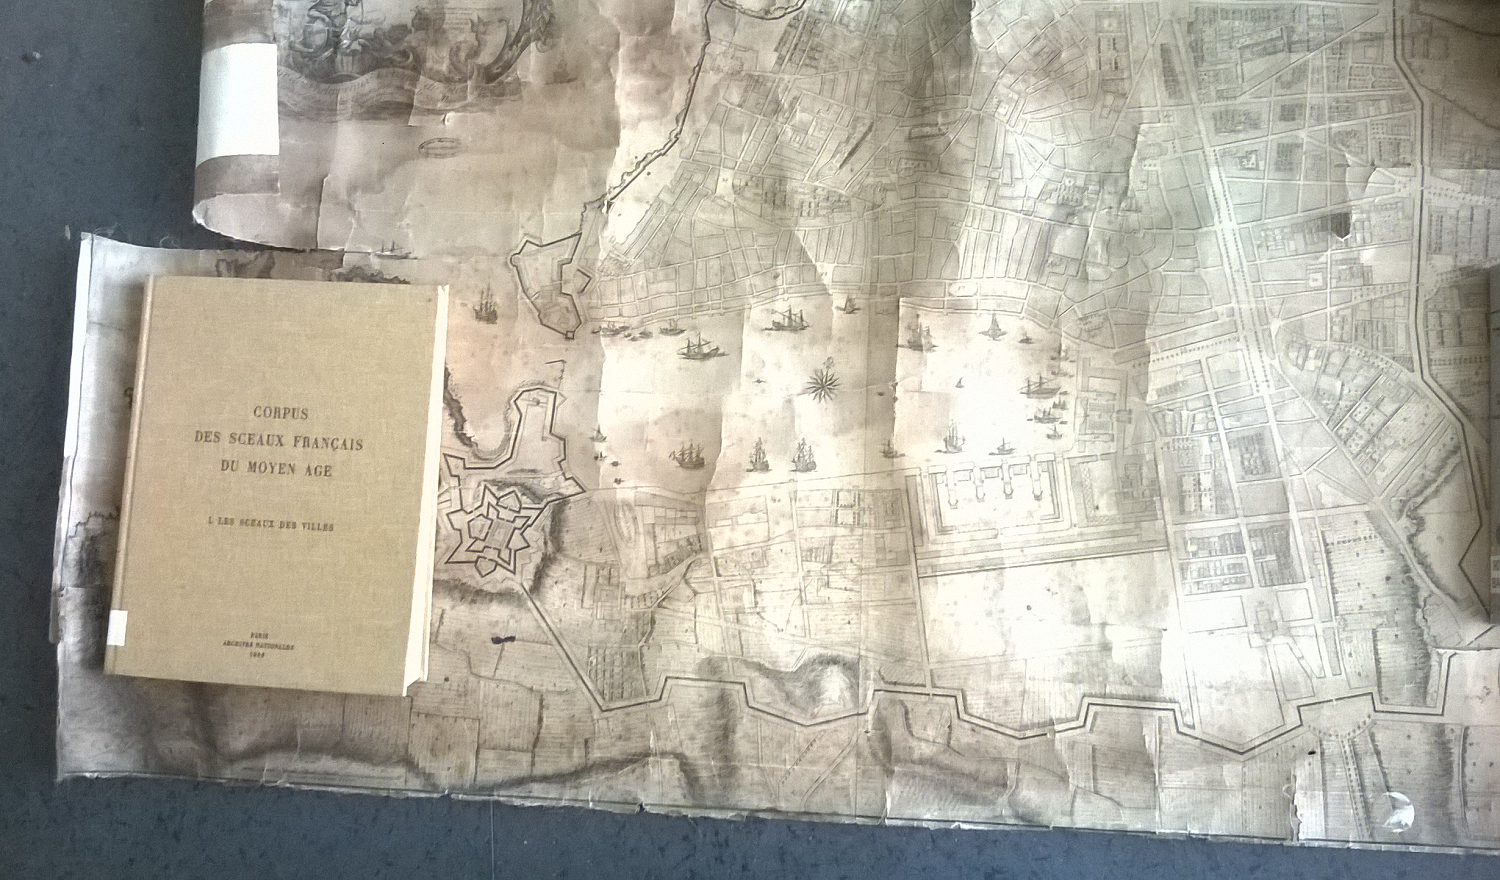 CORPUS
DES SCEAUX FRANÇAIS
DU MOYEN AGE
I. LES SCEAUX DES VILLES
PARIS
ARCHIVES NATIONALES